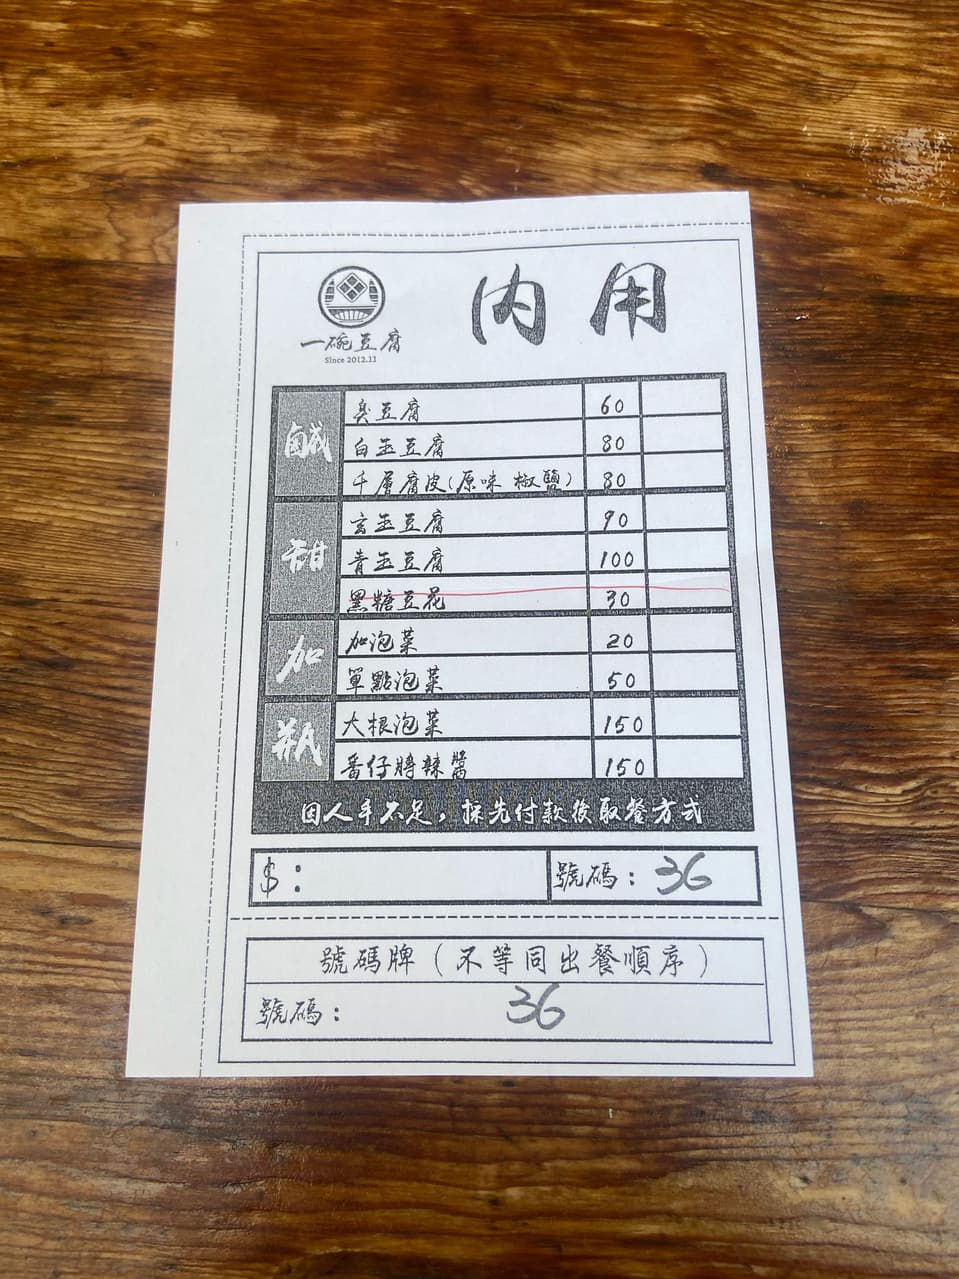 內用
一碗豆腐
Since 2012.11
鹹
臭豆腐 60
白玉豆腐 80
千層腐皮(原味 椒鹽) 80
甜
玄玉豆腐 90
青玉豆腐 100
黑糖豆花 30
加
加泡菜 20
單點泡菜 50
瓶
大根泡菜 150
番仔將辣醬 150
因人手不足，採先付款後取餐方式
$：
號碼：36
號碼牌（不等同出餐順序）
號碼：36